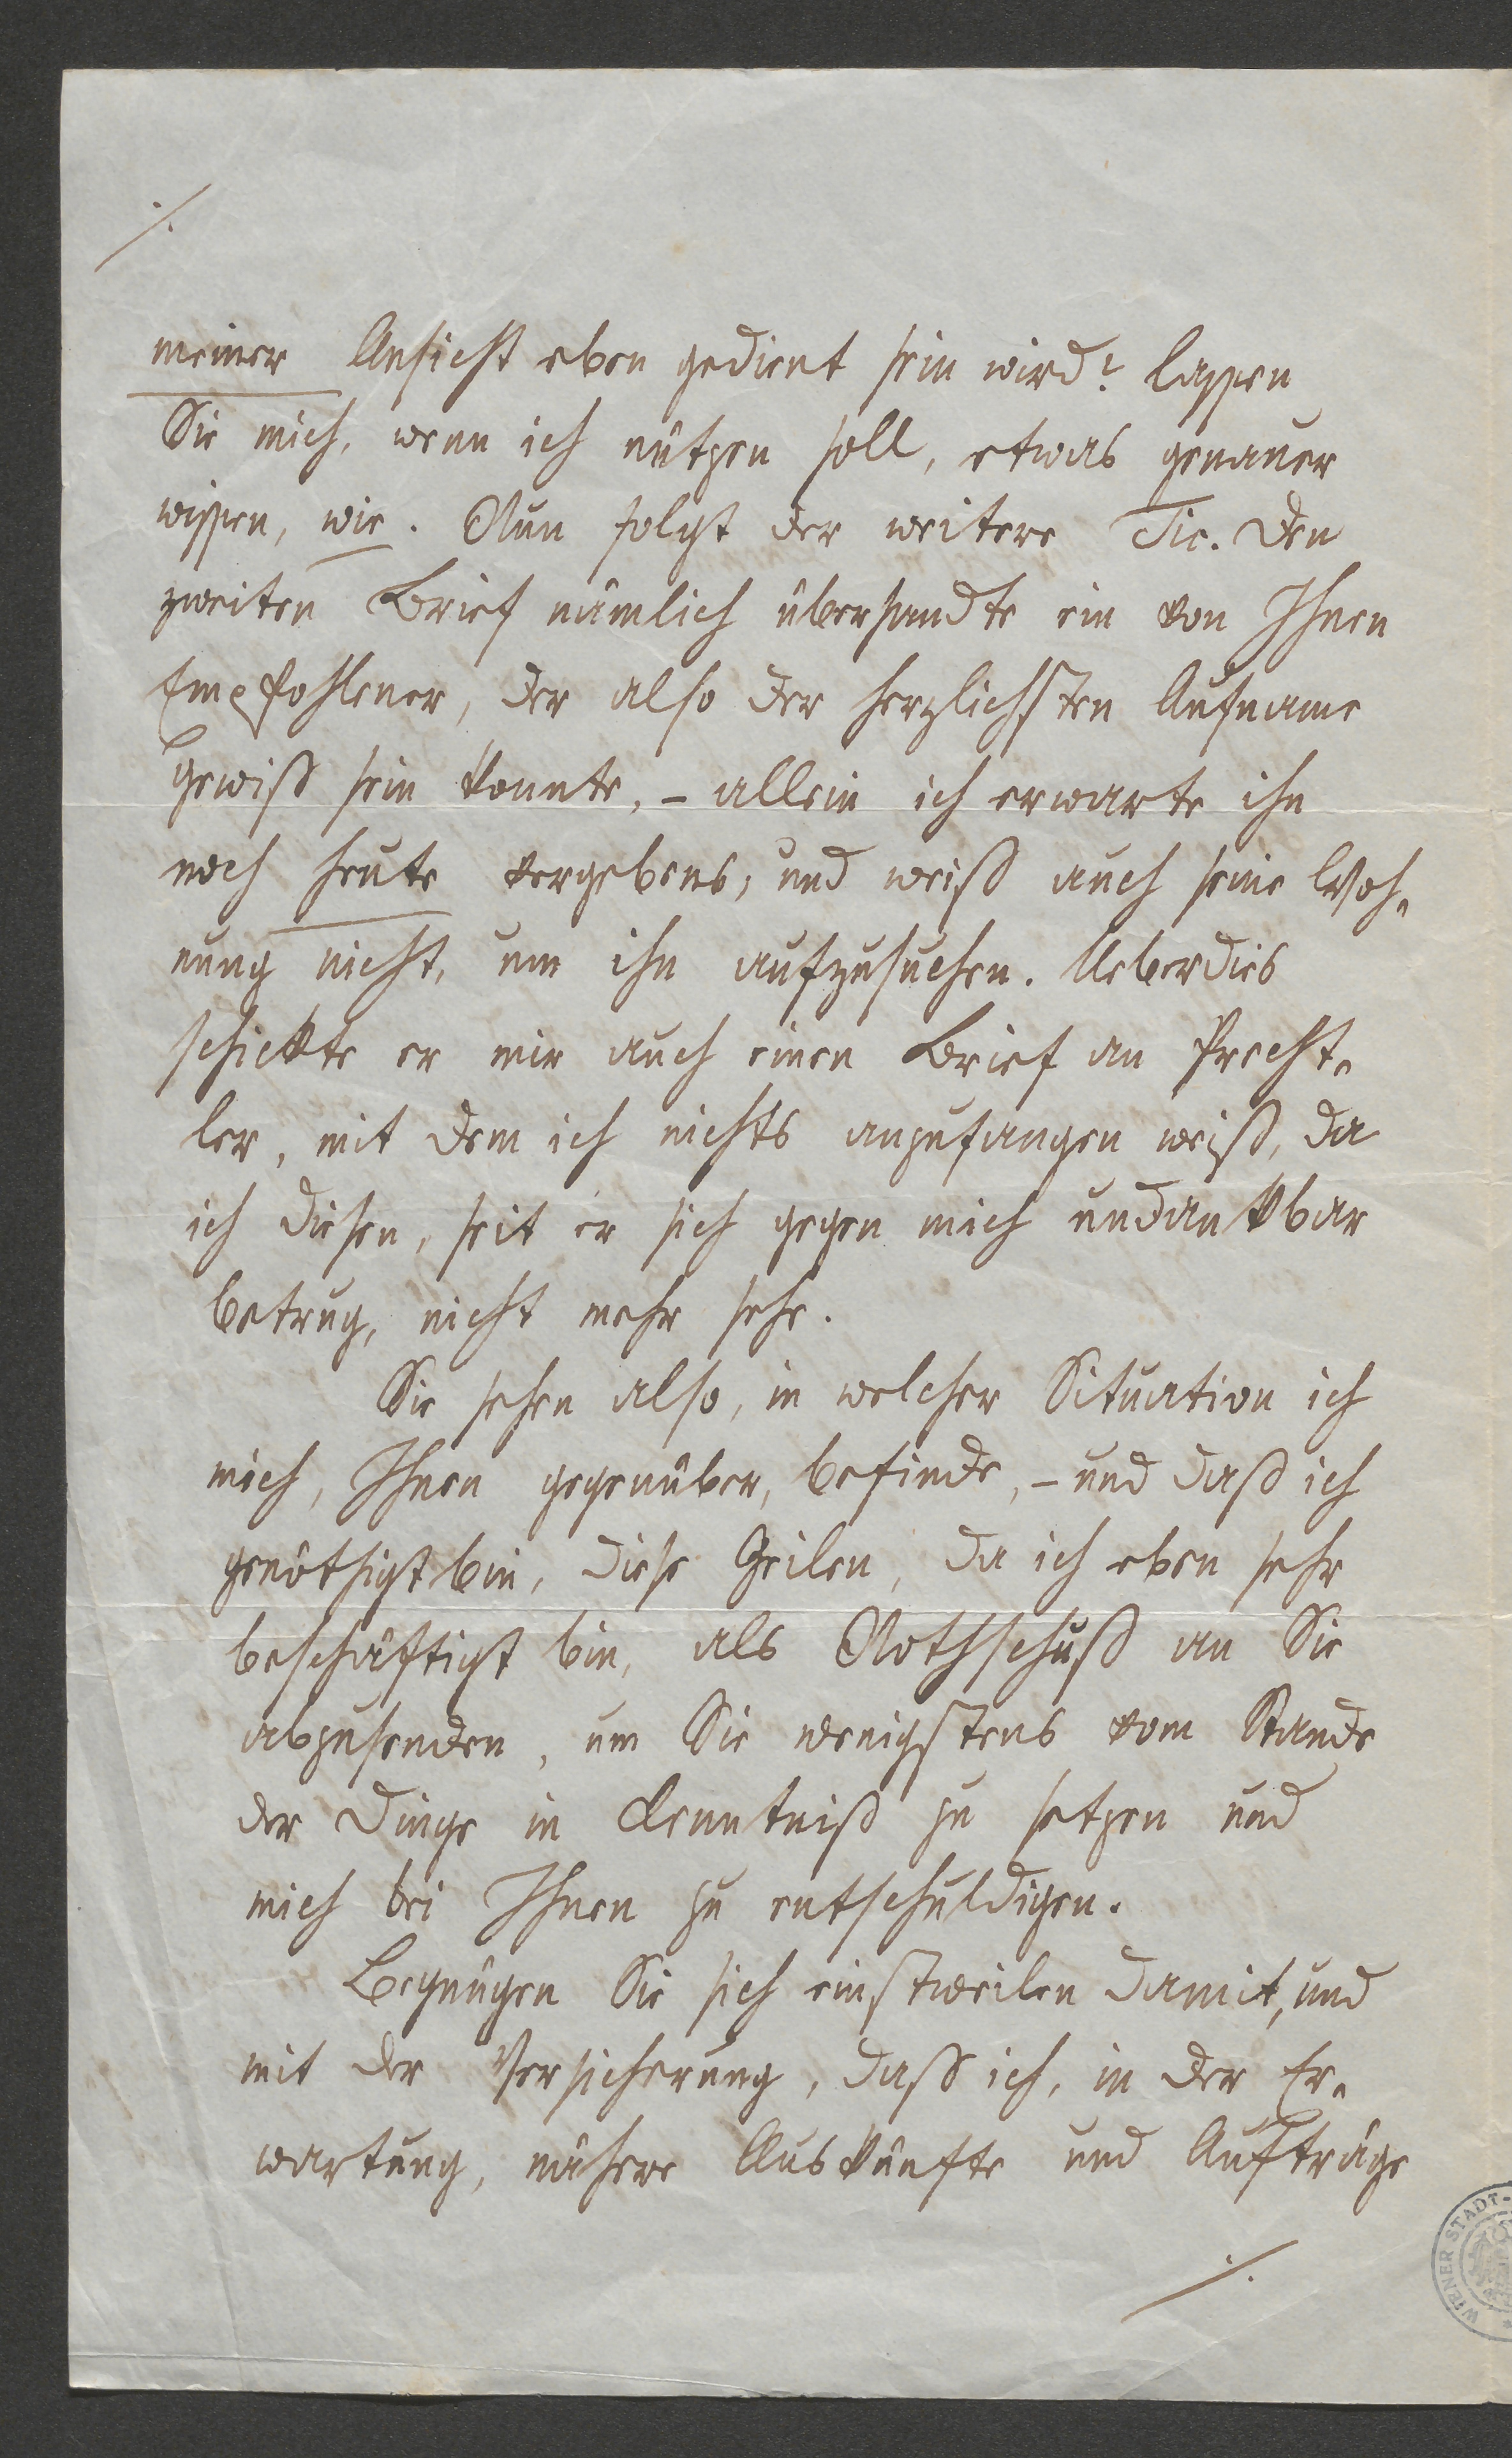 ./.
meiner Ansicht eben gedient sein wird? Lassen
Sie mich, wenn ich nützen soll, etwas genauer
wissen, wie. Nun folgt der weitere Tic. Den
zweiten Brief nämlich übersandte ein von Ihnen
Empfohlener, der also der herzlichsten Aufname
gewiß sein konnte, – allein ich erwarte ihn
noch heute vergebens, und weiß auch seine Woh-
nung nicht, um ihn aufzusuchen. Ueberdies
schickte er mir auch einen Brief an Precht-
ler, mit dem ich nichts anzufangen weiß, da
ich diesen, seit er sich gegen mich undankbar
betrug, nicht mehr sehe.
Sie sehen also, in welcher Situation ich
mich, Ihnen gegenüber, befinde, – und daß ich
genöthigt bin, diese Zeilen, da ich eben sehr
beschäftigt bin, als Nothschuß an Sie
abzusenden, um Sie wenigstens vom Stande
der Dinge in Kenntniß zu setzen und
mich bei Ihnen zu entschuldigen.
Begnügen Sie sich einstweilen damit, und
mit der Versicherung, daß ich, in der Er-
wartung, nähere Auskünfte und Aufträge
./.
WIENER STADT-